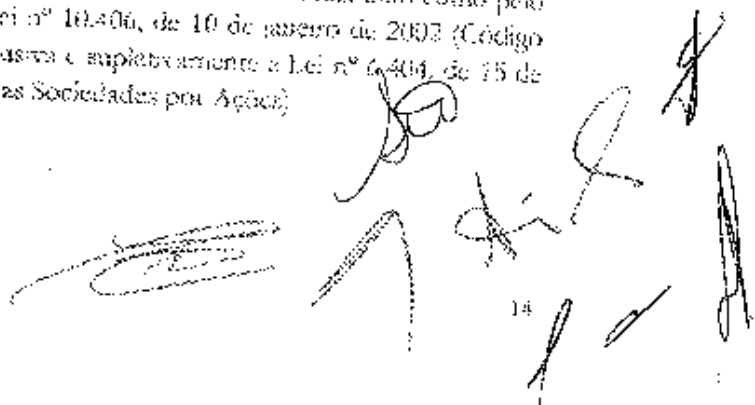 bem como pelo
ei nº 10.406, de 10 de janeiro de 2002 (Código
e supletivamente a Lei nº 6.404, de 15 de
as Sociedades por Ações)
14